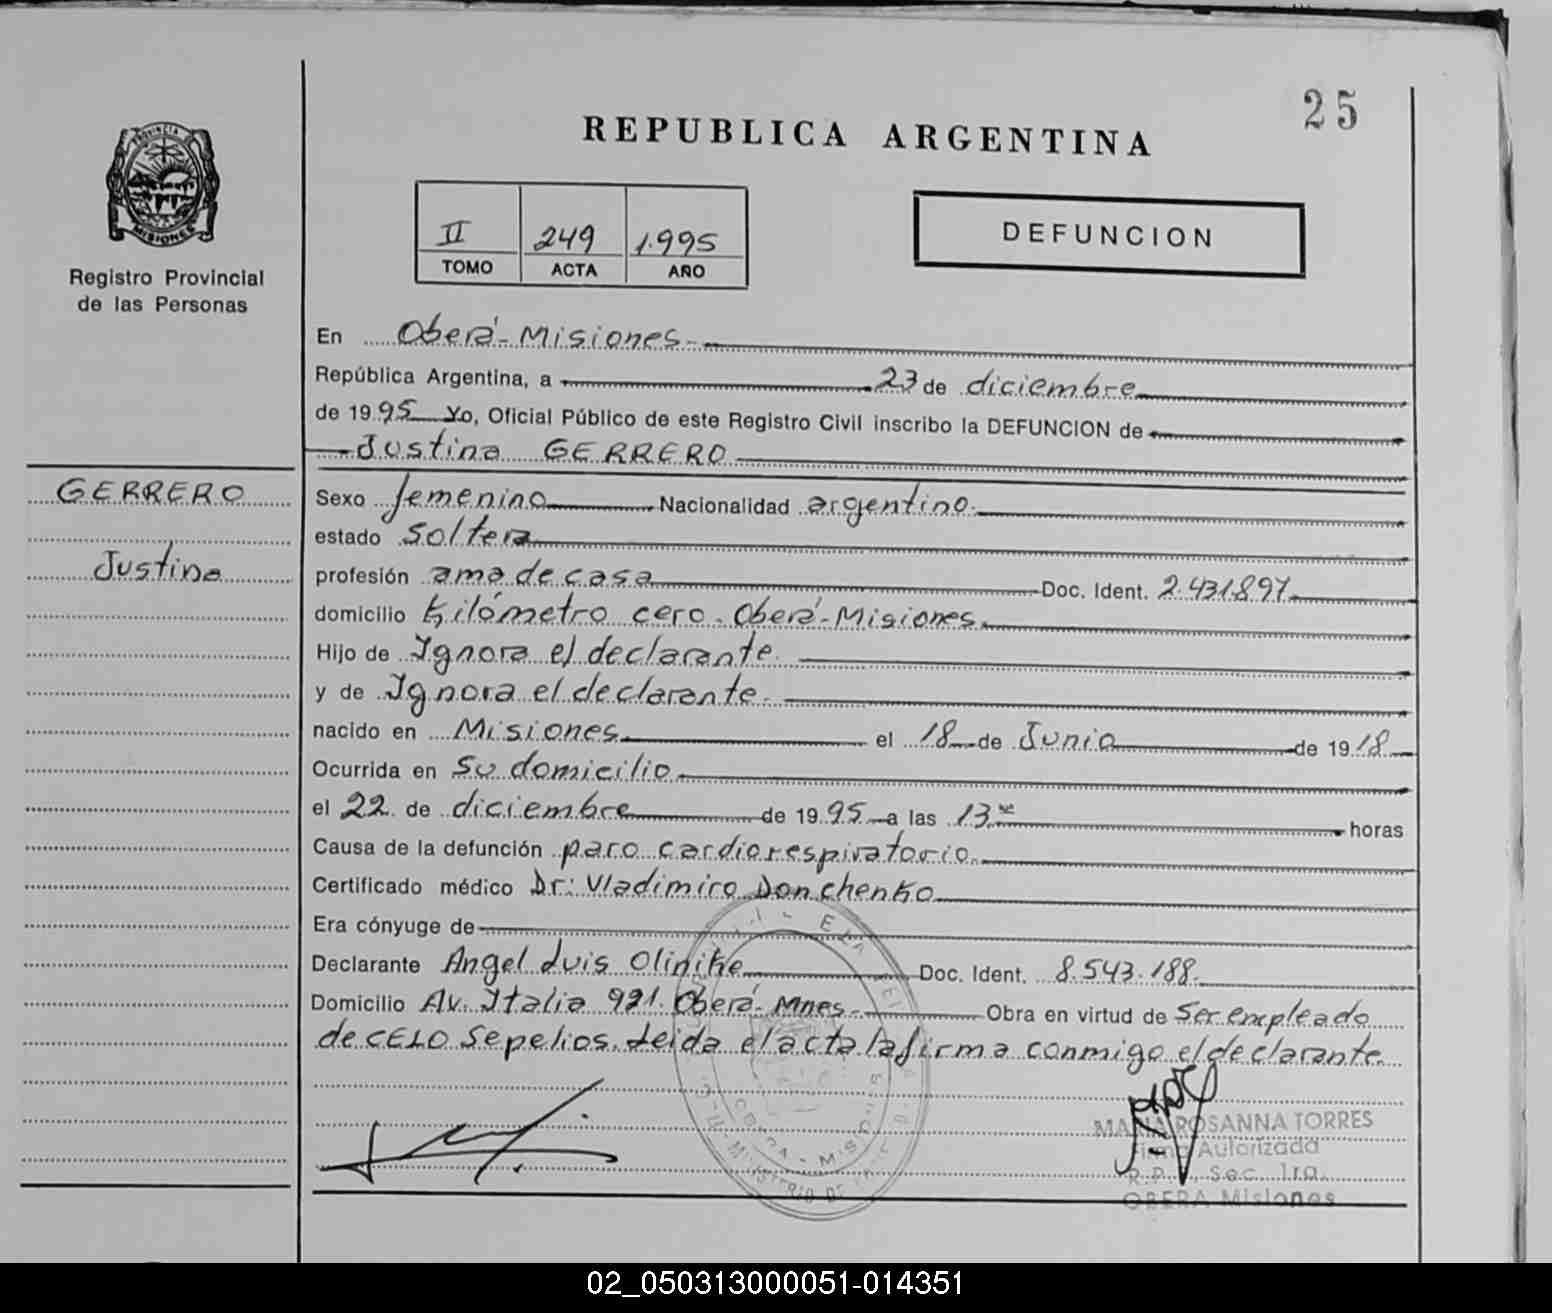 25
REPUBLICA ARGENTINA
PROVINCIA
MISIONES
Registro Provincial
de las Personas
II 249 1.995
TOMO ACTA AÑO
DEFUNCION
En Oberá-Misiones-
República Argentina, a 23 de diciembre
de 1995 Yo, Oficial Público de este Registro Civil inscribo la DEFUNCION de
Justina GERRERO
GERRERO
Justina
Sexo femenino Nacionalidad argentino.
estado soltera
profesión ama de casa Doc. Ident. 2.431.897
domicilio Kilómetro cero-Oberá-Misiones.
Hijo de Ignora el declarante.
y de Ignora el declarante.
nacido en Misiones el 18 de Junio de 1918
Ocurrida en Su domicilio
el 22 de diciembre de 1995 a las 13 horas
Causa de la defunción paro cardiorespiratorio.
Certificado médico Dr: Vladimiro Donchenko
Era cónyuge de
Declarante Angel Luis Olinike Doc. Ident. 8.543.188.
Domicilio Av. Italia 921. Oberá-Mnes- Obra en virtud de Ser empleado
de CELO Sepelios. Leida el acta la firma conmigo el declarante.
MARIA ROSANNA TORRES
Firma Autorizada
R.P.P., Sec. 1ra.
OBERA Misiones
02_050313000051-014351